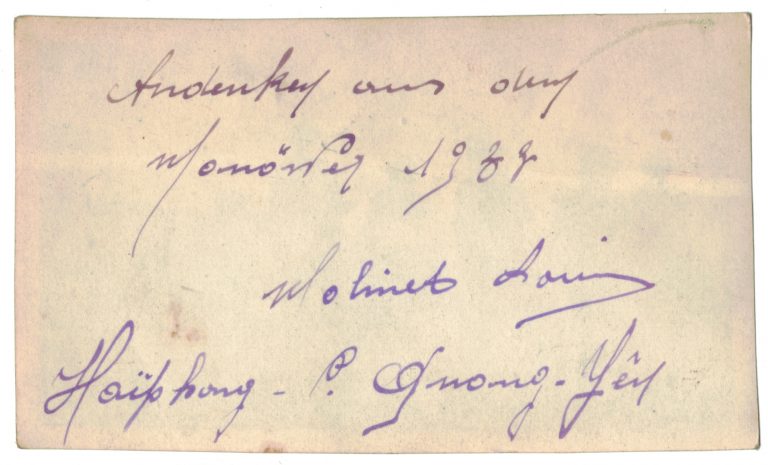 Andenken aus den
Manöver 1933
Molinet Louis
Haïphong - P. Quang-Yên